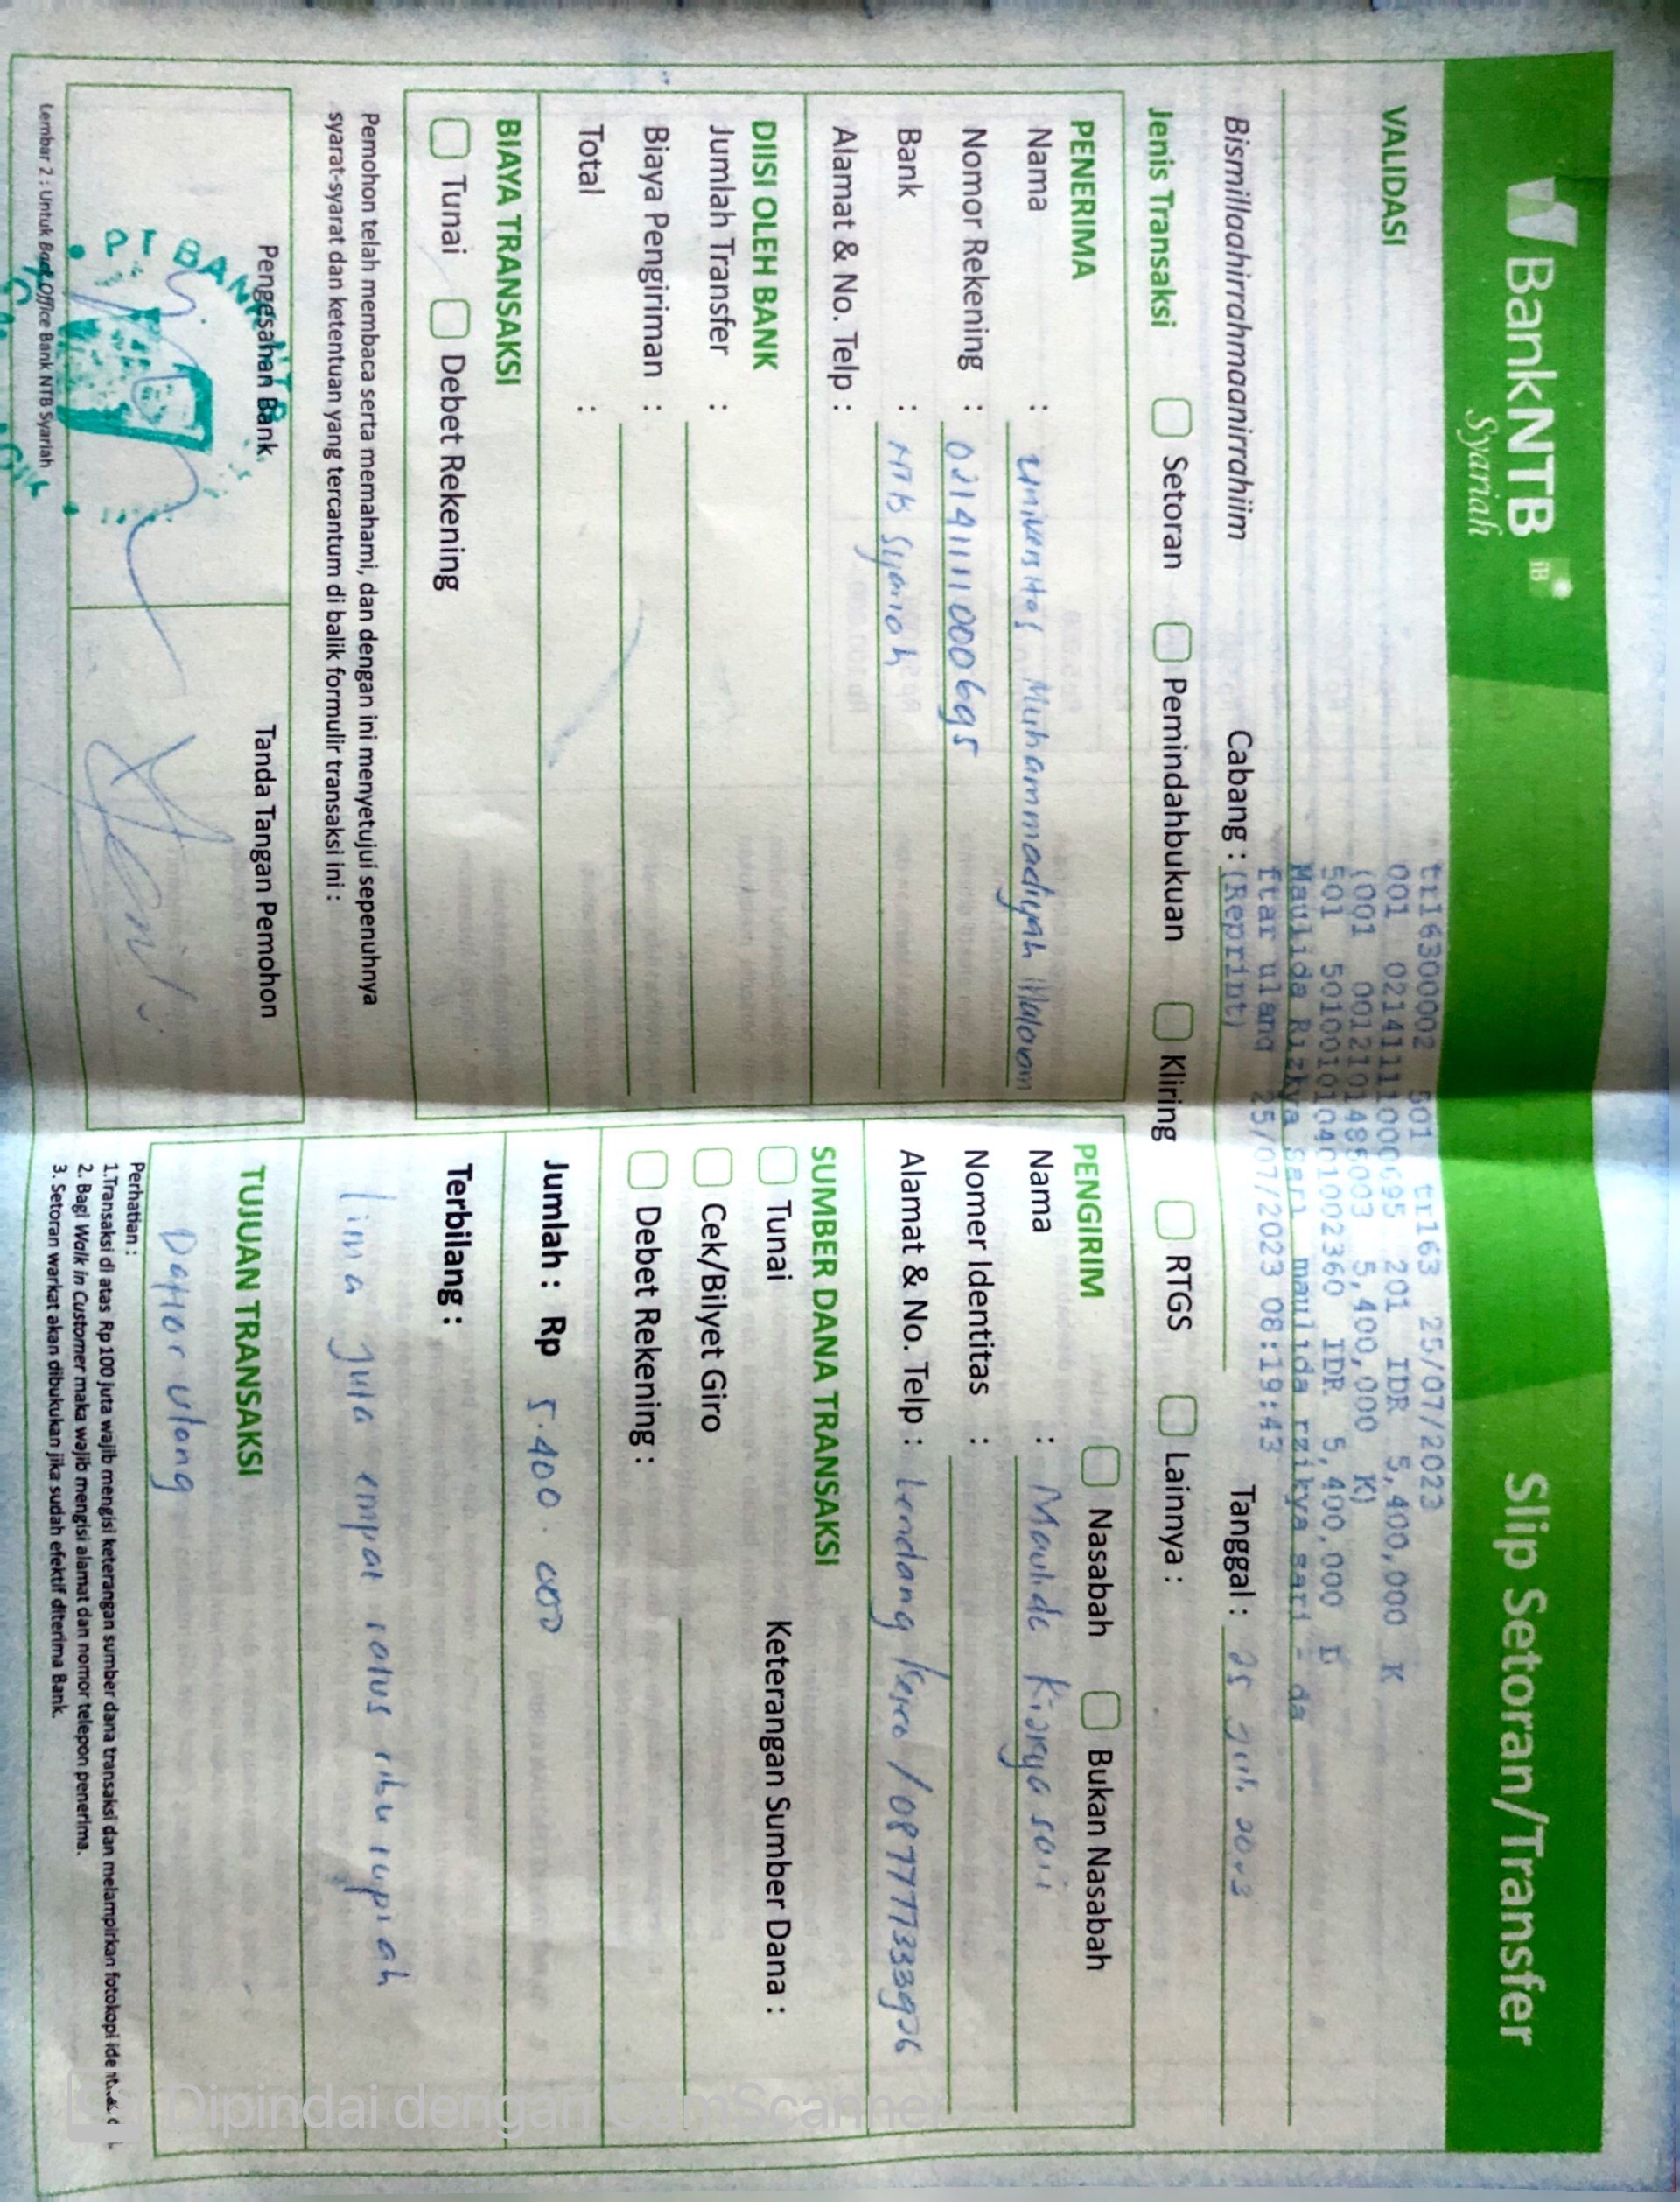 BankNTB iB
Syariah
Slip Setoran/Transfer
VALIDASI
tr16300002 501 tr163 25/07/2023
001 0214111100695 201 IDR 5,400,000 K
(001 0012101486003 5,400,000 K)
501 501001010401002360 IDR 5,400,000 D
Maulida Rizkya Sari maulida rzikya sari - da
ftar ulang 25/07/2023 08:19:43
Bismillaahirrahmaanirrahiim
Cabang : (Reprint)
Tanggal : 25 Juli 2023
Jenis Transaksi Setoran Pemindahbukuan Kliring RTGS Lainnya :
PENERIMA
Nama : Universitas Muhammadiyah Mataram
Nomor Rekening : 02141111000695
Bank : NTB Syariah
Alamat & No. Telp :
PENGIRIM Nasabah Bukan Nasabah
Nama : Maulida Rizkya sari
Nomer Identitas :
Alamat & No. Telp : Lendang / 087777333926
DIISI OLEH BANK
Jumlah Transfer :
Biaya Pengiriman :
Total :
SUMBER DANA TRANSAKSI
Tunai Keterangan Sumber Dana :
Cek/Bilyet Giro
Debet Rekening :
BIAYA TRANSAKSI
Tunai Debet Rekening
Jumlah : Rp 5.400.000
Terbilang :
lima juta empat ratus ribu rupiah
Pemohon telah membaca serta memahami, dan dengan ini menyetujui sepenuhnya
syarat-syarat dan ketentuan yang tercantum di balik formulir transaksi ini :
Pengesahan Bank
Tanda Tangan Pemohon
PT BANK NTB
TUJUAN TRANSAKSI
Daftar ulang
Lembar 2 : Untuk Back Office Bank NTB Syariah
Perhatian :
1.Transaksi di atas Rp 100 juta wajib mengisi keterangan sumber dana transaksi dan melampirkan fotokopi
2. Bagi Walk in Customer maka wajib mengisi alamat dan nomor telepon penerima.
3. Setoran warkat akan dibukukan jika sudah efektif diterima Bank.
Dipindai dengan CamScanner